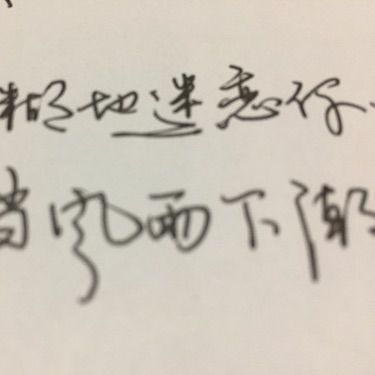 糊地迷恋你
当风雨下潮